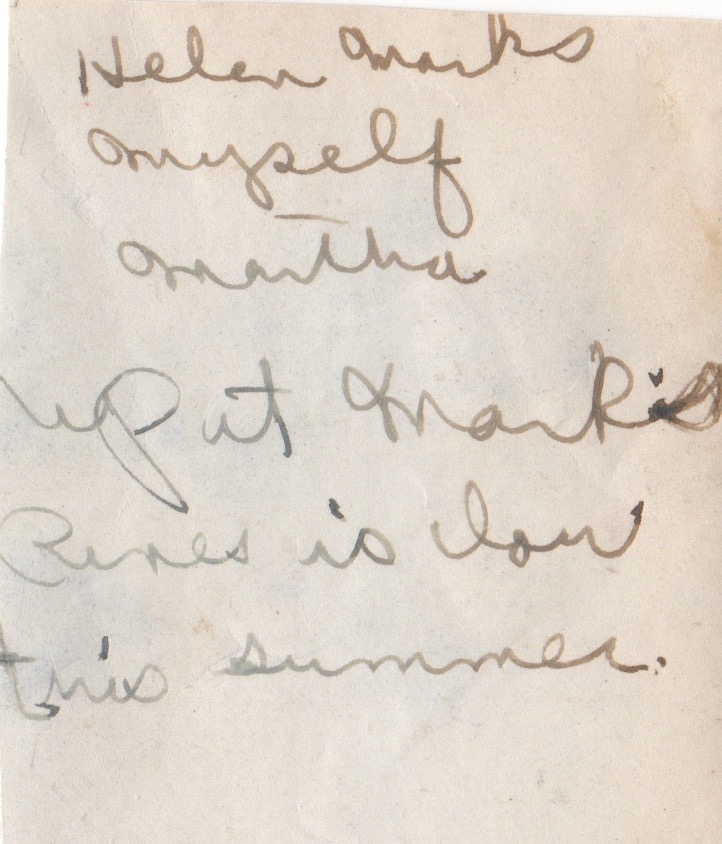 Helen Marks
myself
Martha
up at Mark's
Pines is low
this summer.